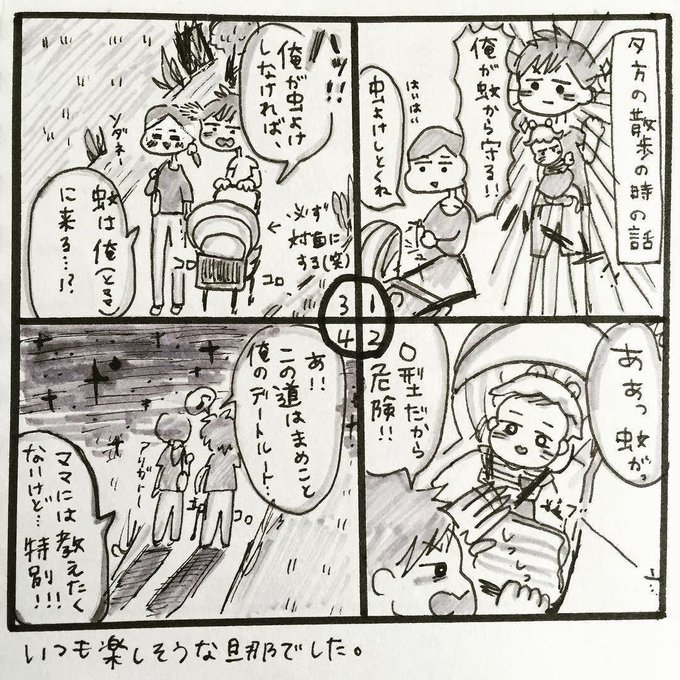 夕方の散歩の時の話
俺が蚊から守る!!
はいはい
虫よけしとくれ
1
ああっ蚊がっ
O型だから
危険!!
しっしっ
2
ハッ!!
俺が虫よけ
しなければ、
ソダネー
蚊は俺(とママ)
に来る…!?
←必ず
対面に
する(笑)
コロ
3
あ!!
この道はまめこと
俺のデートルート…
ママには教えたく
ないけど…特別!!!
アリガトー
コロ
4
いつも楽しそうな旦那でした。